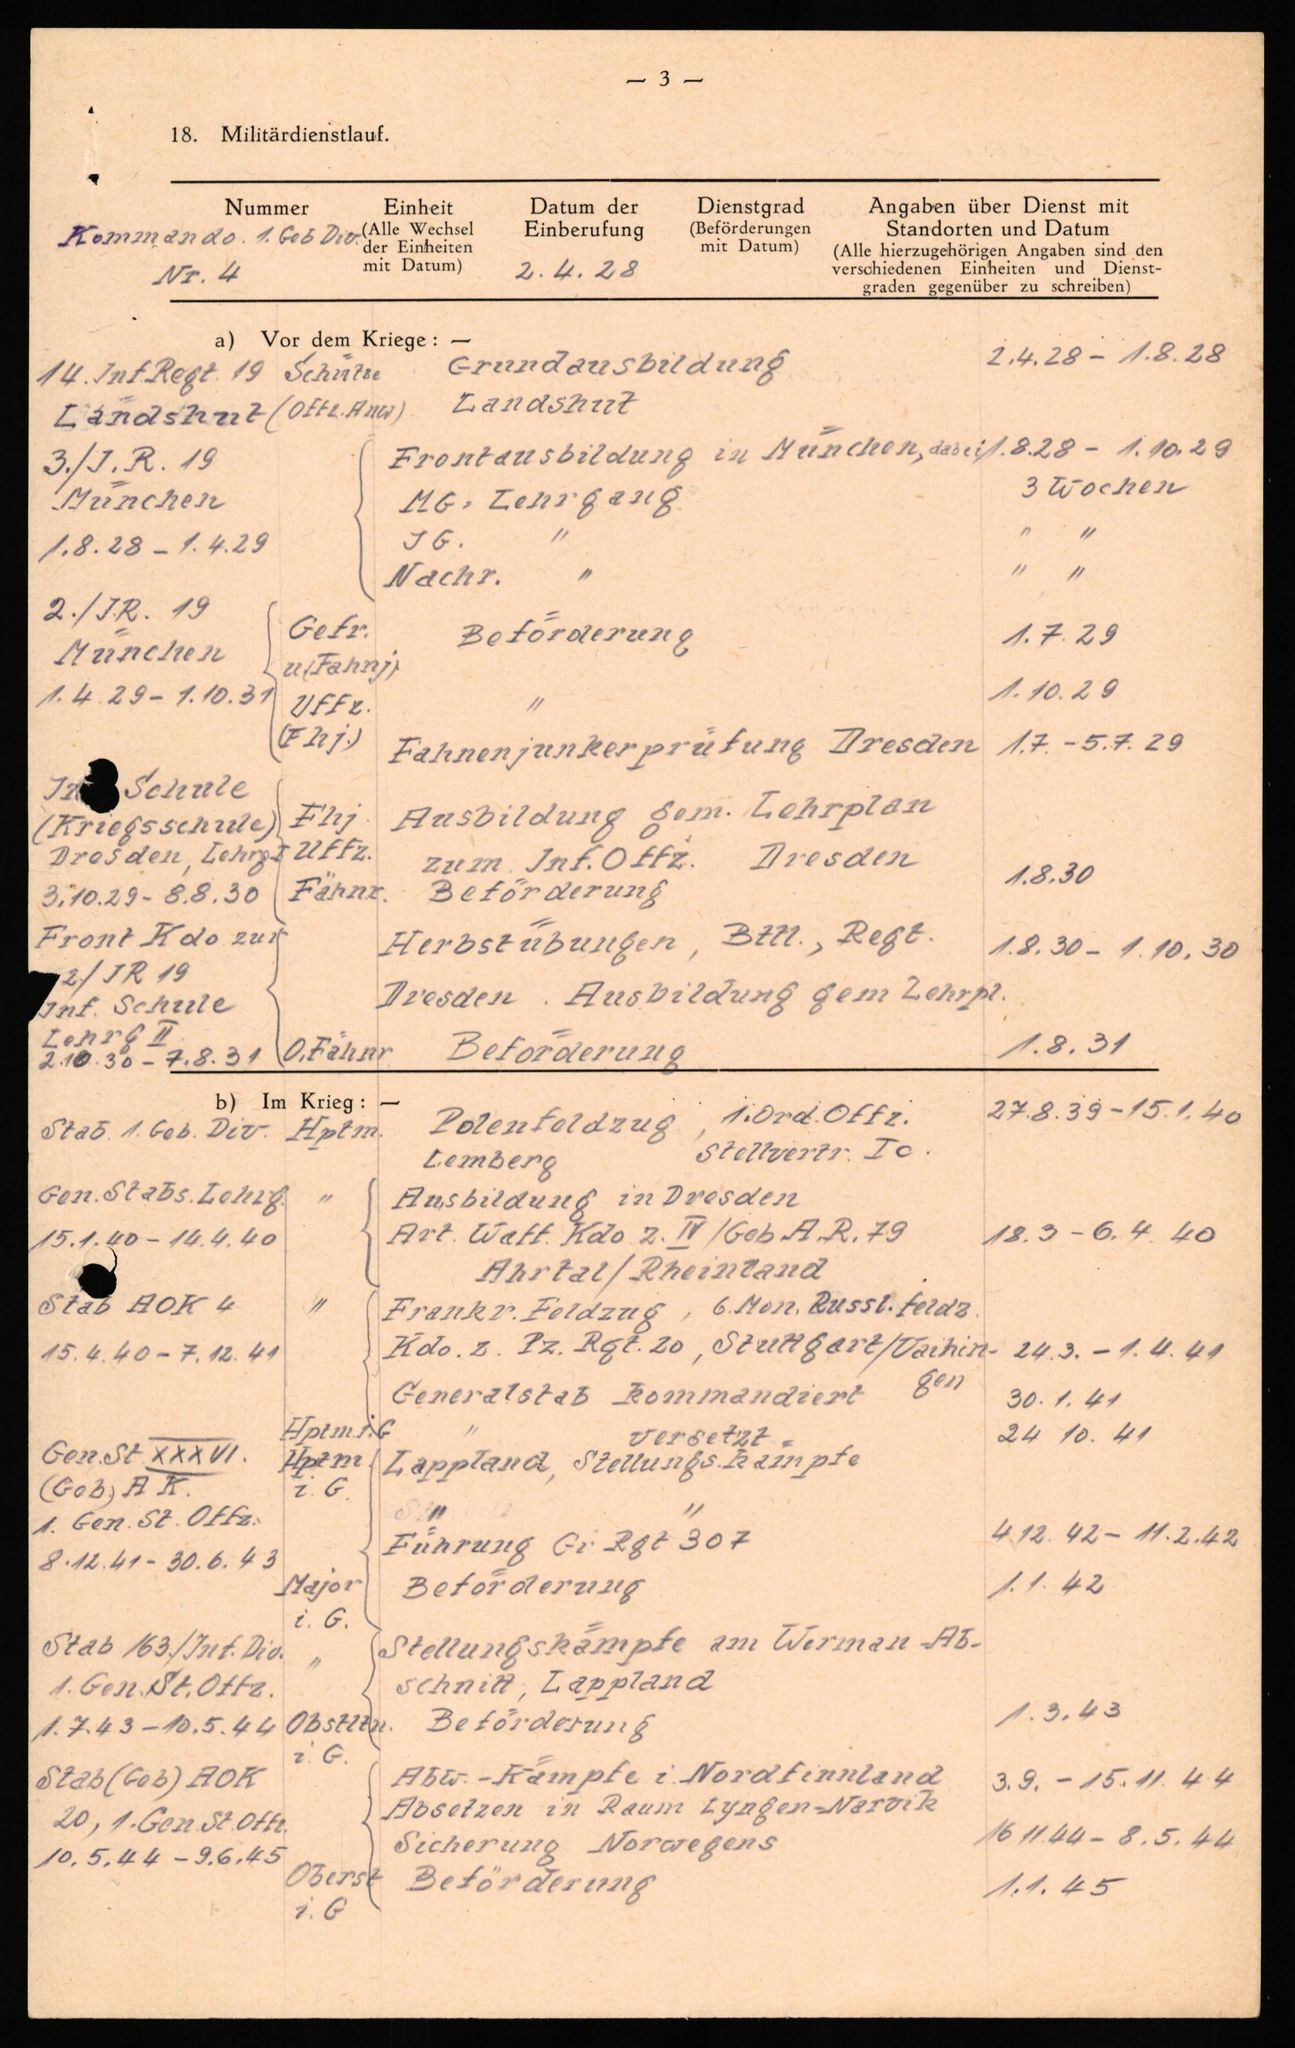 — 3 —
18. Militärdienstlauf.
Nummer Einheit Datum der Dienstgrad Angaben über Dienst mit
(Alle Wechsel Einberufung (Beförderungen Standorten und Datum
der Einheiten mit Datum) (Alle hierzugehörigen Angaben sind den
mit Datum) verschiedenen Einheiten und Dienst-
graden gegenüber zu schreiben)
Kommando. 1. Geb Div.
Nr. 4 2.4.28
a) Vor dem Kriege: —
14. Inf. Regt. 19 Schütze Grundausbildung 2.4.28 – 1.8.28
Landshut (Offz. Anw) Landshut
3./J.R. 19 Frontausbildung in München, dabei 1.8.28 – 1.10.29
München MG. Lehrgang 3 Wochen
1.8.28 – 1.4.29 JG. " " "
Nachr. " " "
2./J.R. 19 Gefr. Beförderung 1.7.29
München u(Fahnj)
1.4.29 – 1.10.31 Uffz. " 1.10.29
(Fhj.) Fahnenjunkerprüfung Dresden 1.7. – 5.7.29
Inf. Schule
(Kriegsschule) Fhj. Ausbildung gem. Lehrplan
Dresden, Lehrg I Uffz. zum Inf. Offz. Dresden
3.10.29 – 8.8.30 Fähnr. Beförderung 1.8.30
Front Kdo zur Herbstübungen, Batl., Regt. 1.8.30 – 1.10.30
2/JR 19
Inf. Schule Dresden. Ausbildung gem Lehrpl.
Lehrg II
2.10.30 – 7.8.31 O.Fähnr Beförderung 1.8.31
b) Im Krieg: —
Stab 1. Geb. Div. Hptm. Polenfeldzug, 1. Ord. Offz. 27.8.39 – 15.1.40
Lemberg Stellvertr. Ic.
Gen. Stabs. Lehrg. " Ausbildung in Dresden
15.1.40 – 14.4.40 Art. Waff. Kdo z. IV/Geb. A.R. 79 18.3 – 6.4.40
Ahrtal/Rheinland
Stab AOK 4 " Frankr. Feldzug, 6. Mon. Russl. feldz.
15.4.40 – 7.12.41 Kdo. z. Pz. Rgt. 20, Stuttgart/Vaihin- 24.3. – 1.4.41
gen
Generalstab kommandiert 30.1.41
Hptm. i.G " versetzt 24 10. 41
Gen. St XXXVI. Hptm Lappland, Stellungs.kämpfe
(Geb) A K. i. G.
1. Gen. St. Offz. " "
8.12.41 – 30.6.43 Führung Gr. Rgt 307 4.12.42 – 11.2.42
Major Beförderung 1.1.42
i. G.
Stab 163./Inf. Div. " Stellungskämpfe am Werman-Ab-
1. Gen. St. Offz. schnitt, Lappland
1.7.43 – 10.5.44 Obstltn. Beförderung 1.3.43
i. G.
Stab (Geb) AOK Abw.-Kämpfe i. Nordfinnland 3.9. – 15.11.44
20, 1. Gen. St. Offz. Absetzen in Raum Lyngen-Narvik
10.5.44 – 9.6.45 Sicherung Norwegens 16 11.44 – 8.5.44
Oberst Beförderung 1.1.45
i. G